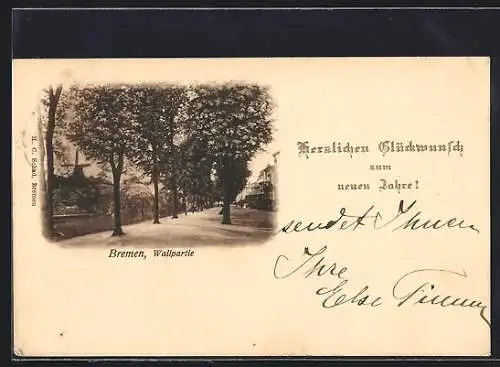 H. C. Schad, Bremen
Bremen, Wallpartie
Herzlichen Glückwunsch
zum
neuen Jahre!
sendet Ihnen
Ihre
Else